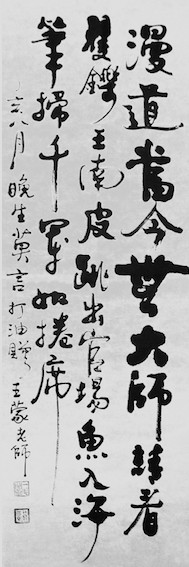 漫道當今無大師請看
矍鑠王南皮跳出官場魚入海
筆掃千軍如捲席
亥八月晚生莫言打油贈王蒙老師